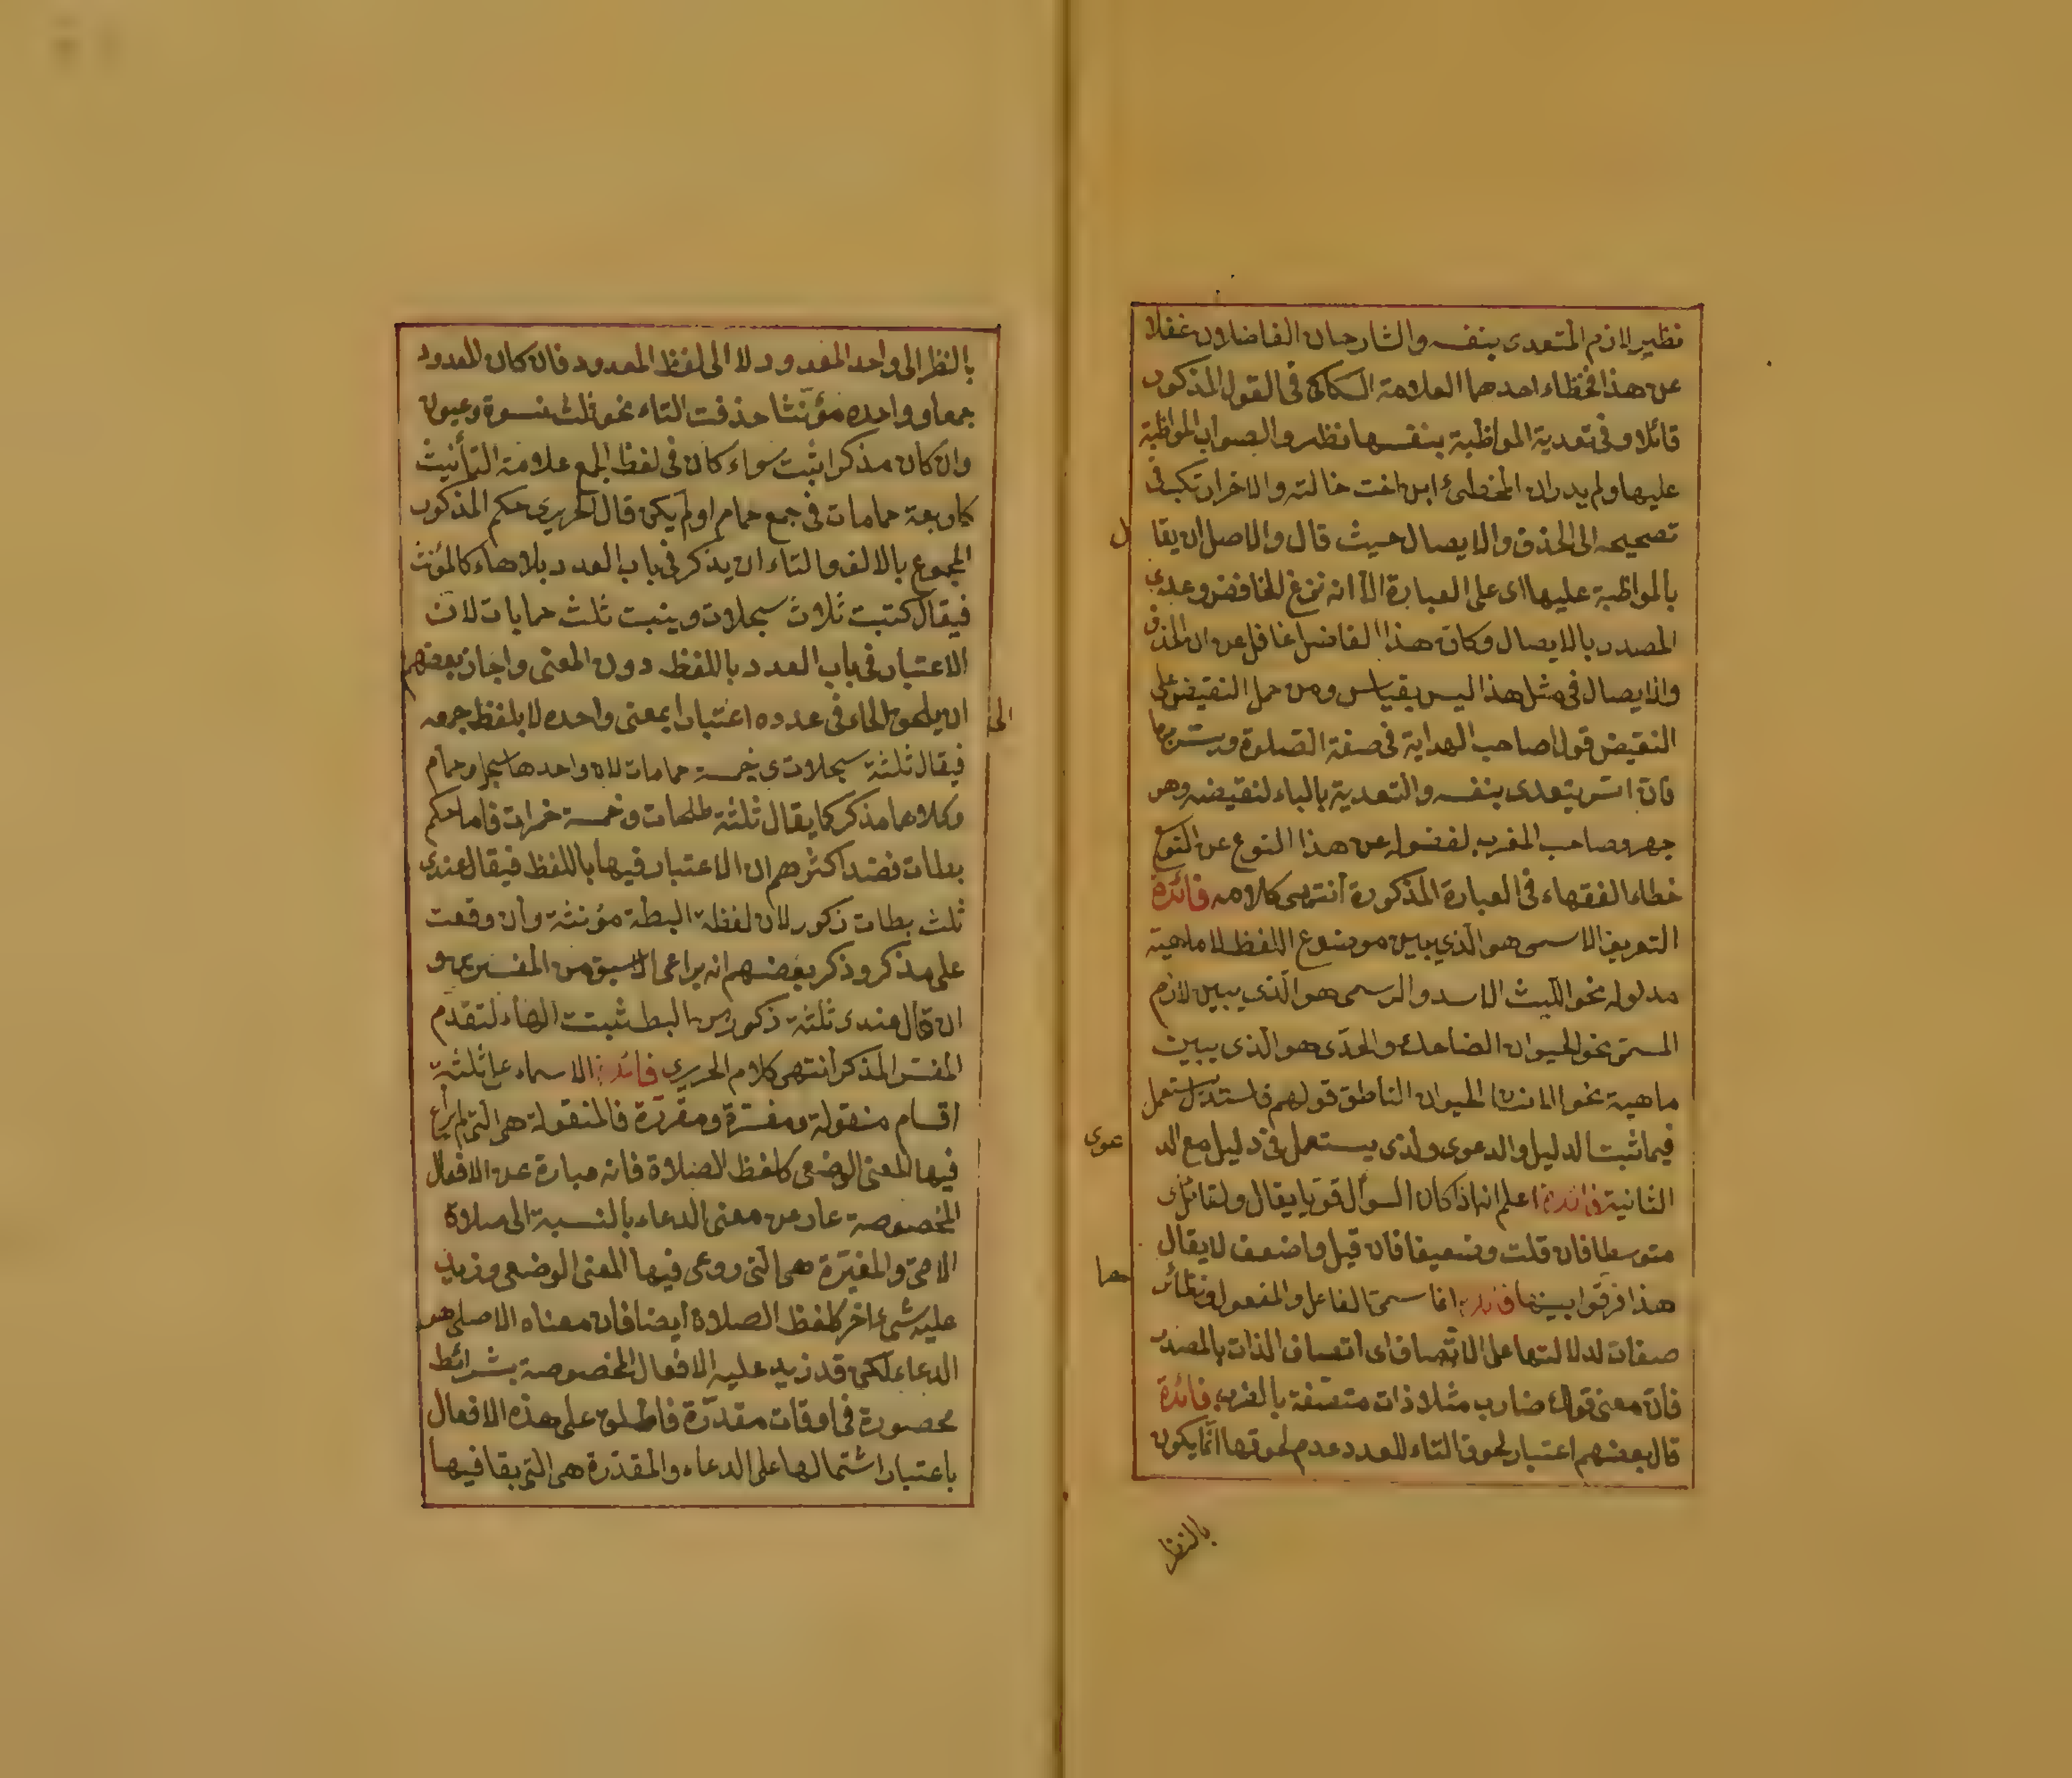 نظير لازم المتعدى بنفسه والشارحان الفاضلان غفلا
عن هذا فخطاء احدهما العلامة السكاكى فى القول المذكور
قائلا وفى تعدية المواظبة بنفسها نظر والصواب المواظبة
عليها ولم يدر ان المخطئ ابن اخت خالته والاخر ارتكب فى
تصحيحه الى الحذف والايصال حيث قال والاصل ان يقا
ل
بالمواظبة عليها اى على العبارة الا انه نزع الخافض وعدى
المصدر بالايصال وكان هذا الفاضل غافل عن ان الحذف
والايصال فى مثل هذا ليس بقياس ومن حمل النقيض على
النقيض قول صاحب الهداية فى صفة الصلوة ويسر بهما
فان اسر يتعدى بنفسه والتعدية بالباء لنقيضه وهو
جهر وصاحب المغرب لغفوله عن هذا النوع عن النوع
خطاء الفقهاء فى العبارة المذكورة انتهى كلامه فائدة
التعريف الاسمى هو الذى يبين موضوع اللفظ لا ماهية
مدلوله نحو الليث الاسد والرسمى هو الذى يبين لازم
المسمى نحو الحيوان الضاحك والحدى هو الذى يبين
ماهية نحو الانسان الحيوان الناطق قولهم فاستدل يستعمل
فيما ثبت الدليل والدعوى والذى يستعمل فى دليل مع الد
عوى
الثانية فائدة اعلم انه اذا كان السؤال قويا يقال ولقائل
متوسطا فان قلت وضعيفا فان قيل واضعف لا يقال
هذا فرقوا بينها فائدة انما سمى الفاعل والمفعول ونظائر
ها
صفات لدلالتها على الاتصاف اى اتصاف الذات بالمصدر
فان معنى قولك ضارب مثلا ذات متصفة بالضرب فائدة
قال بعضهم اعتبار لحوق التاء للعدد وعدم لحوقها انما يكون
بالنظر
بالنظر الى واحد المعدود لا الى لفظ المعدود فان كان المعدود
جمعا وواحده مؤنثا حذفت التاء نحو ثلث نسوة وعيون
وان كان مذكرا ثبت سواء كان فى لفظ الجمع علامة التأنيث
كاربعة حمامات فى جمع حمام او لم يكن قال الحريرى حكم المذكور
المجموع بالالف والتاء ان يذكر فى باب العدد بلا هاء كالمؤنث
فيقال كتبت ثلاث سجلات وبنيت ثلث حمامات لان
الاعتبار فى باب العدد باللفظ دون المعنى واجاز بعضهم
ان يلحق الهاء فى عدده اعتبارا بمعنى واحده لا بلفظ جمعه
فيقال ثلثة سجلات وخمسة حمامات لان واحدها سجل وحمام
وكلاهما مذكر كما يقال ثلثة طلحات وخمسة حمرات فاما حكم
بطات فعند اكثرهم ان الاعتبار فيها باللفظ فيقال عندى
ثلث بطات ذكور لان لفظة البطة مؤنثة وان وقعت
على مذكر وذكر بعضهم انه يراعى الاسبق من المفسر فهو
ان قال عندى ثلثة ذكور من البط ثبتت الهاء لتقدم
المفسر المذكر انتهى كلام الحريرى فائدة الاسماء على ثلثة
اقسام منقولة ومغيرة ومقررة فالمنقولة هى التى لم يراع
فيها المعنى الوضعى كلفظ الصلاة فانه عبارة عن الافعال
المخصوصة عار عن معنى الدعاء بالنسبة الى صلاة
الامى والمغيرة هى التى روعى فيها المعنى الوضعى وزيد
عليه شىء اخر كلفظ الصلاة ايضا فان معناه الاصلى هو
الدعاء لكن قد زيد عليه الافعال المخصوصة بشرائط
محصورة فى اوقات مقدرة فاطلق على هذه الافعال
باعتبار اشتمالها على الدعاء والمقررة هى التى بقا فيها